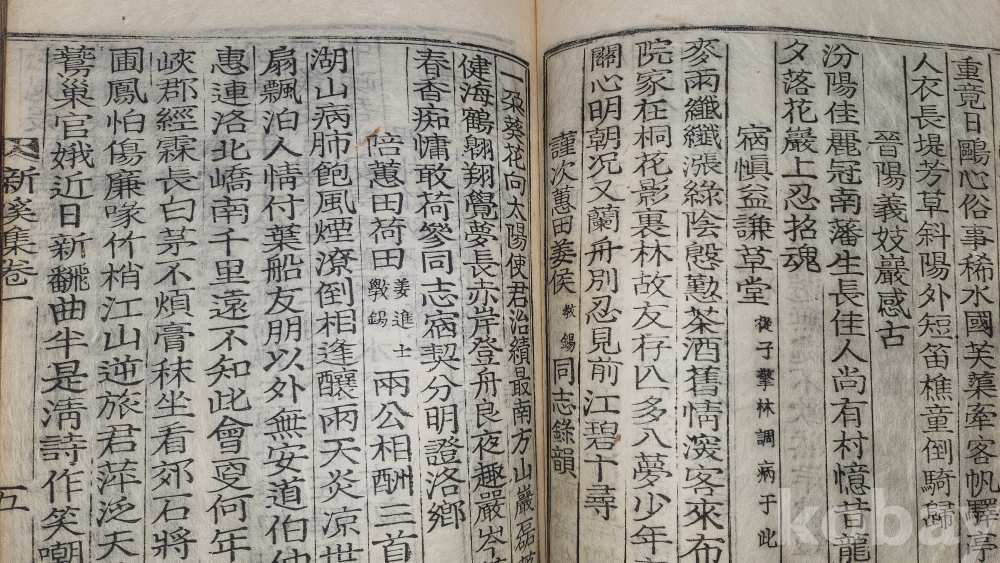 重竟日鷗心俗事稀水國芙蕖牽客帆驛亭
人衣長堤芳草斜陽外短笛樵童倒騎歸
晉陽義妓巖感古
汾陽佳麗冠南藩生長佳人尚有村憶昔龍
夕落花巖上忍招魂
宿愼益謙草堂 從子擎林調病于此
麥雨纖纖漲綠陰慇懃茶酒舊情深客來布
院家在桐花影裏林故友存亡多入夢少年
關心明朝况又蘭舟別忍見前江碧十尋
謹次蕙田姜侯 敎錫 同志錄韻
一朶葵花向太陽使君治績最南方山巖磊
健海鶴翺翔覺夢長赤岸登舟良夜趣嚴岑
春香痴慵敢荷叅同志宿契分明證洛鄉
陪蕙田荷田 姜進士斅錫 兩公相酬三首
湖山病肺飽風煙潦倒相逢釀雨天炎凉世
扇飄泊人情付葉船友朋以外無安道伯仲
惠連洛北嶠南千里遠不知此會更何年
峽郡經霖長白茅不煩膏秣坐看郊石將
圃鳳怕傷廉喙竹梢江山逆旅君萍泛天
鶯巢官娥近日新翻曲半是淸詩作笑嘲
新溪集卷一
五
kobay